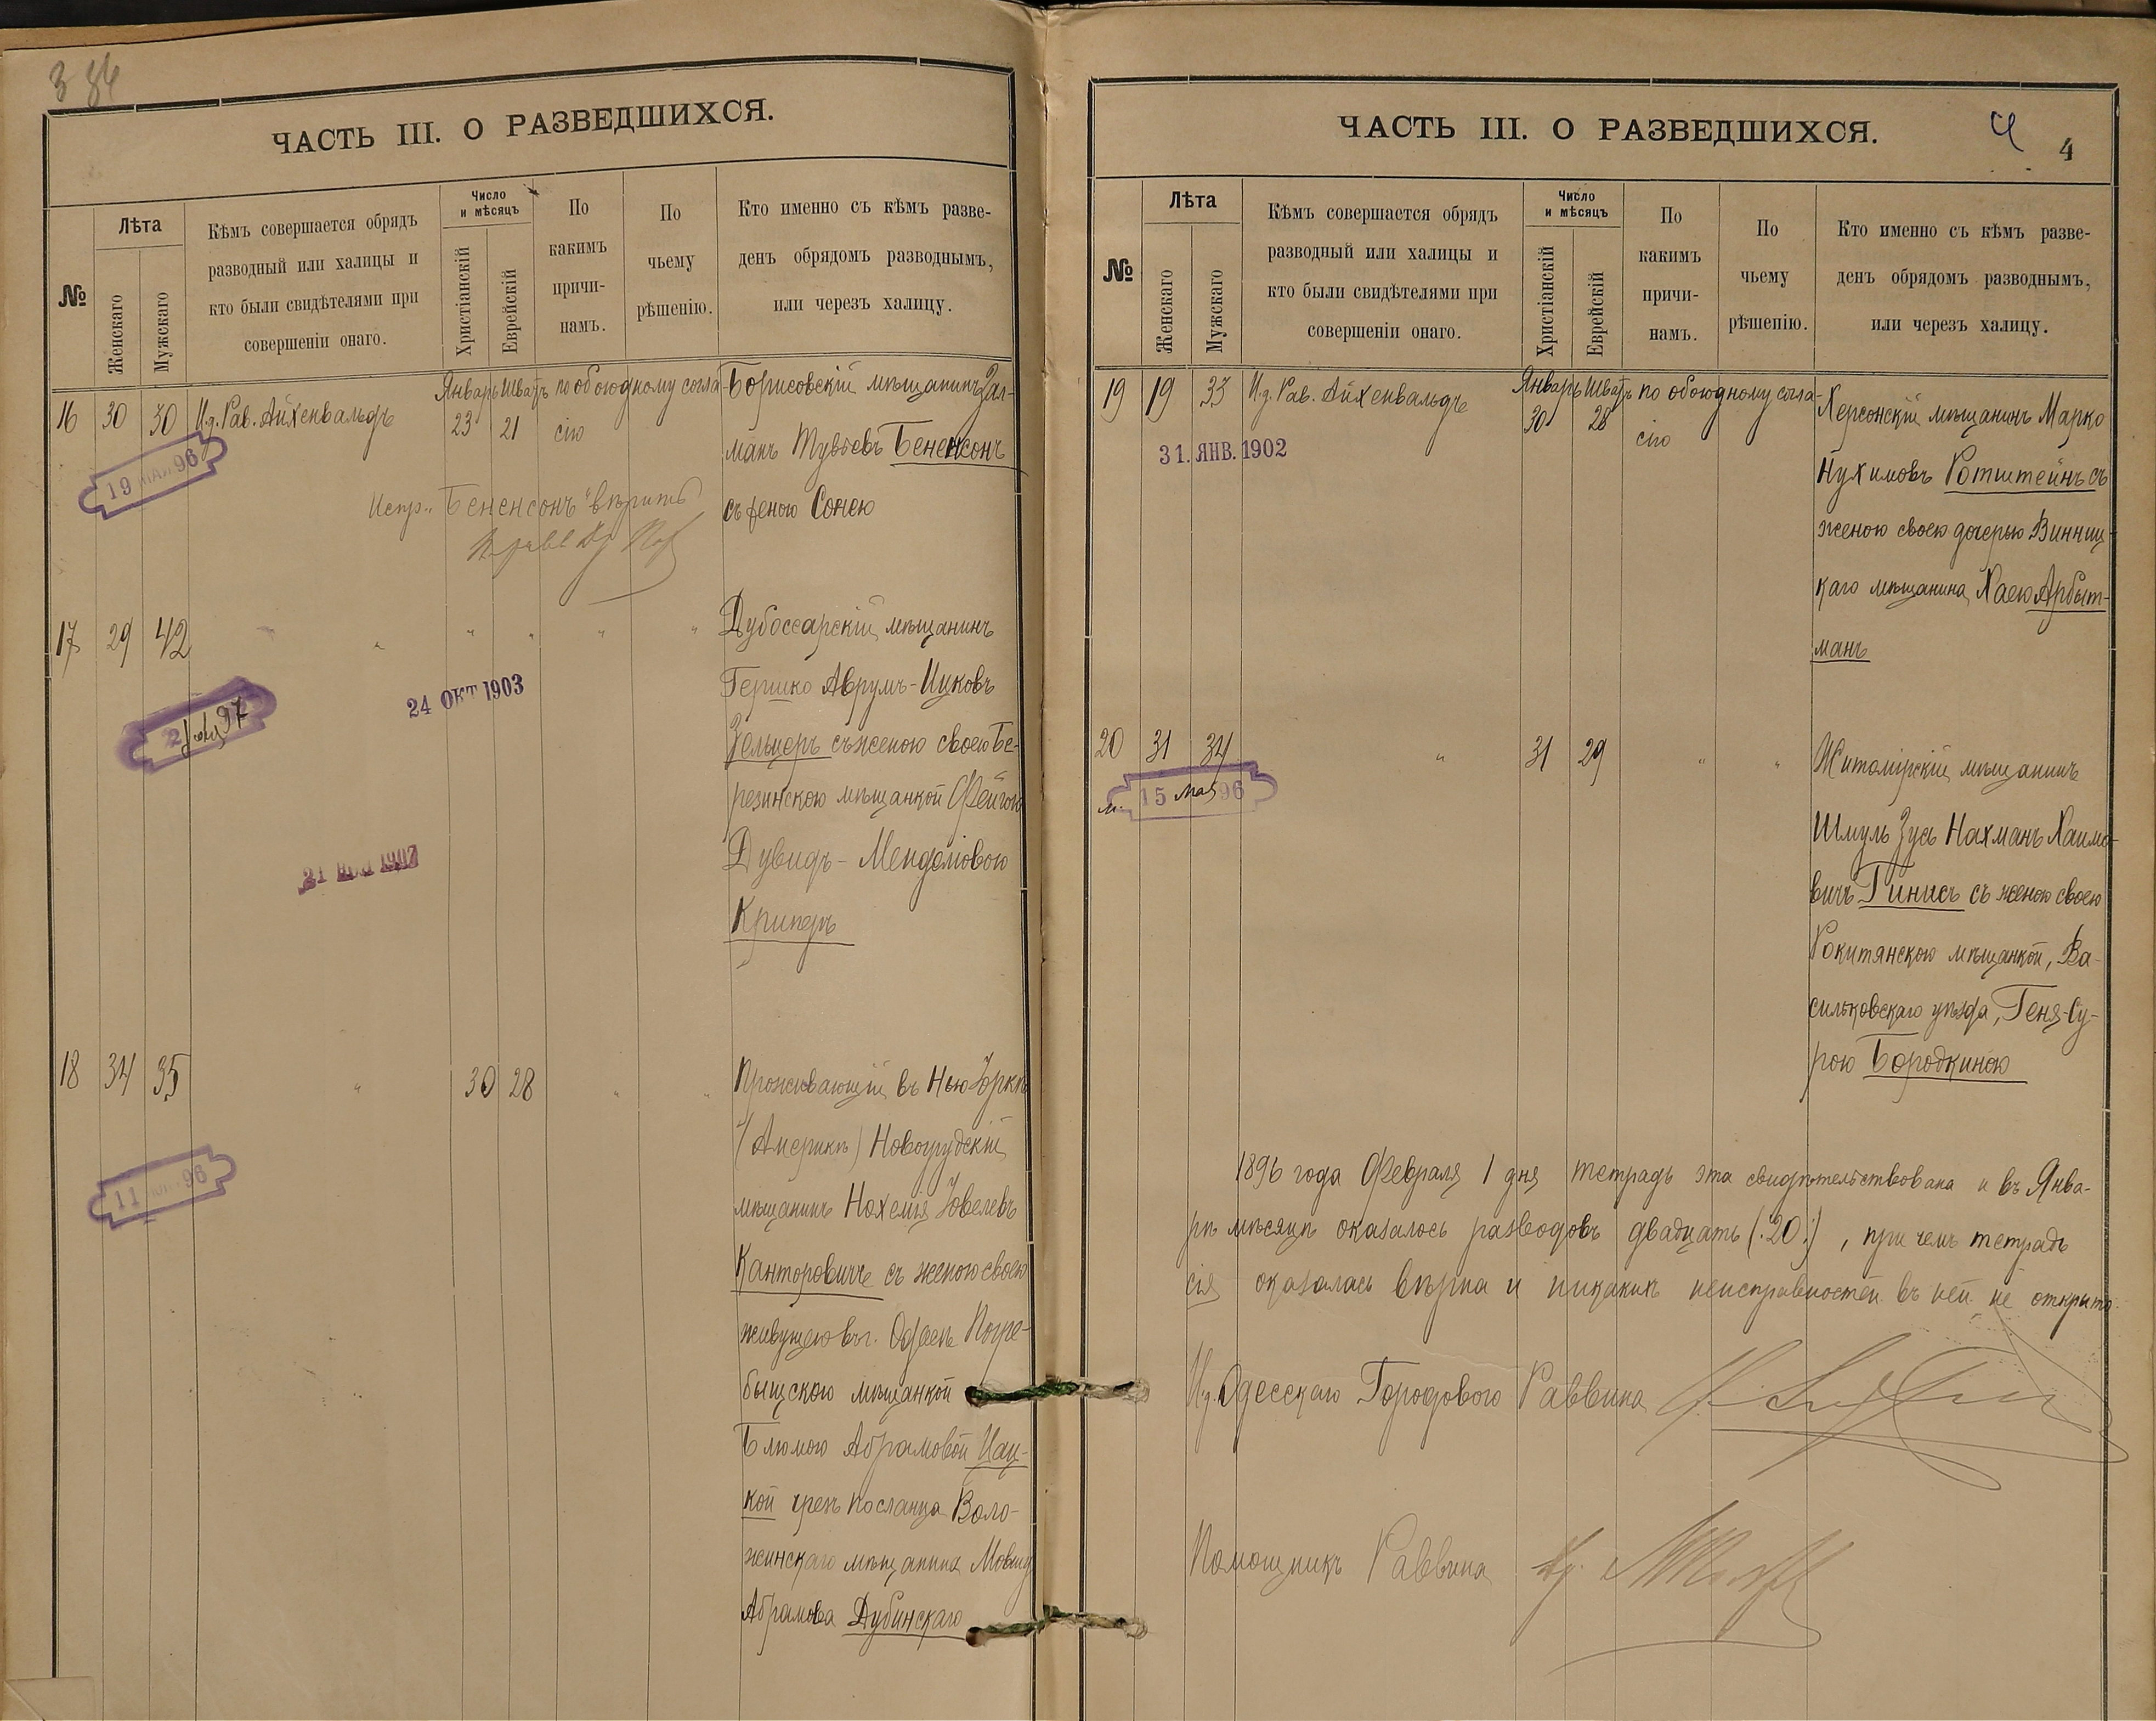 3 84
ЧАСТЬ III. О РАЗВЕДШИХСЯ.
№
Лѣта
Женскаго
Мужскаго
Кѣмъ совершается обрядъ
разводный или халицы и
кто были свидѣтелями при
совершеніи онаго.
Число
и мѣсяцъ
Христіанскій
Еврейскій
По
какимъ
причи-
намъ.
По
чьему
рѣшенію.
Кто именно съ кѣмъ разве-
денъ обрядомъ разводнымъ,
или черезъ халицу.
Январь Шватъ по обоюдному согла-
16 30 30 И.д. Рав. Айхенвальдъ 23 21 сію
Борисовскій мѣщанинъ Зал-
манъ Тувьевъ Бененсонъ
съ женою Сонею
19 МАЯ 96
Испр. „Бененсонъ“ вѣрить
17 29 42 " " " " "
Дубоссарскій мѣщанинъ
Гершко Аврумъ-Ицковъ
Зельцеръ съ женою своею Бе-
резинскою мѣщанкой Фейгою
Дувидъ-Менделіовою
Криперъ
24 ОКТ 1903
2 97
21 1902
18 34 35 " 30 28 " "
Проживающій въ Нью Іоркѣ
(Америкѣ) Новогрудскій
мѣщанинъ Нохемія Іовелевъ
Канторовичъ съ женою своею
живущею въ г. Одессѣ Погре-
быщскою мѣщанкой
Блюмою Абрамовой Цац-
кой чрезъ посланца Воло-
жинскаго мѣщанина Мовша
Абрамова Дубинскаго
11 96
ЧАСТЬ III. О РАЗВЕДШИХСЯ.
4
4
№
Лѣта
Женскаго
Мужскаго
Кѣмъ совершается обрядъ
разводный или халицы и
кто были свидѣтелями при
совершеніи онаго.
Число
и мѣсяцъ
Христіанскій
Еврейскій
По
какимъ
причи-
намъ.
По
чьему
рѣшенію.
Кто именно съ кѣмъ разве-
денъ обрядомъ разводнымъ,
или черезъ халицу.
Январь Шватъ по обоюдному согла-
19 19 33 И.д. Рав. Айхенвальдъ 30 28 сію
Херсонскій мѣщанинъ Марко
Нухимовъ Ротштейнъ съ
женою своею дочерью Винниц-
каго мѣщанина Хаею Арбыт-
манъ
31. ЯНВ. 1902
20 31 34 " 31 29 " "
Житомірскій мѣщанинъ
Шмуль Зусь Нахманъ Хаимо-
вичъ Гинисъ съ женою своею
Рокитянскою мѣщанкой, Ва-
сильковскаго уѣзда, Геня-Су-
рою Бородкиною
15 Мая 96
1896 года Февраля 1 дня тетрадь эта свидѣтельствована и въ Янва-
рѣ мѣсяцѣ оказалось разводовъ двадцать (:20:), при чемъ тетрадь
сія оказалась вѣрна и никакихъ неисправностей въ ней не открыто.
И.д. Одесскаго Городового Раввина
Помощникъ Раввина